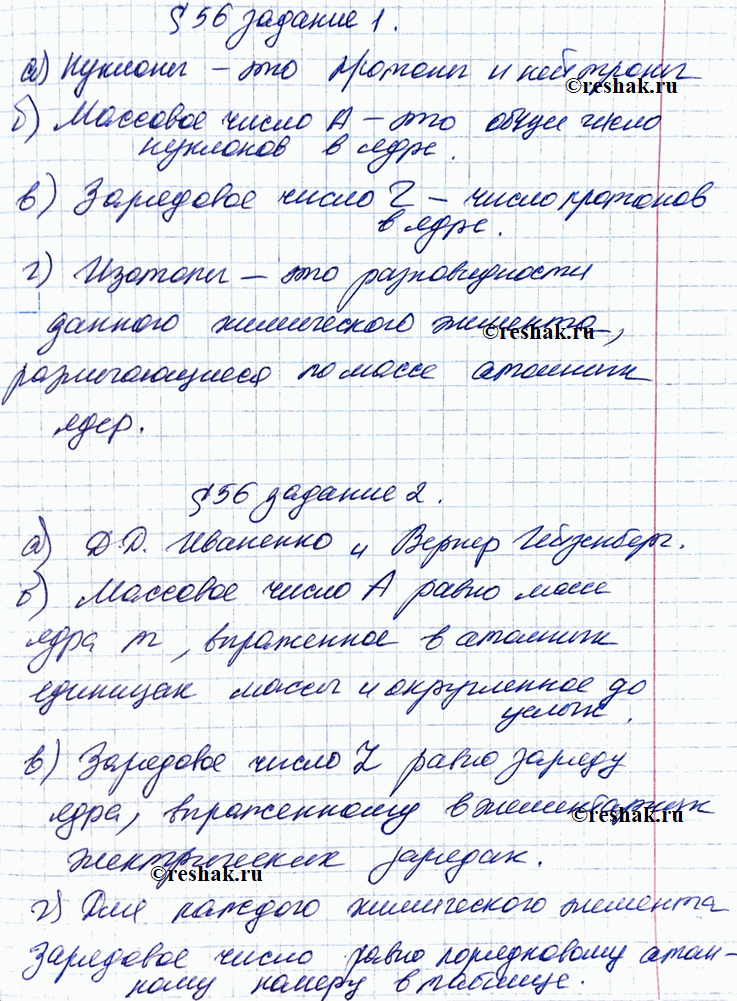 § 56 задание 1.
а) Нуклоны – это протоны и нейтроны
©reshak.ru
б) Массовое число А – это общее число
нуклонов в ядре.
в) Зарядовое число Z – число протонов
в ядре.
г) Изотопы – это разновидности
данного химического элемента,
©reshak.ru
различающиеся по массе атомных
ядер.
§ 56 задание 2.
а) Д.Д. Иваненко и Вернер Гейзенберг.
б) Массовое число А равно массе
ядра m, выраженное в атомных
единицах массы и округленное до
целых.
в) Зарядовое число Z равно заряду
ядра, выраженному в элементарных
©reshak.ru
электрических зарядах.
©reshak.ru
г) Для каждого химического элемента
Зарядовое число равно порядковому атом-
ному номеру в таблице.